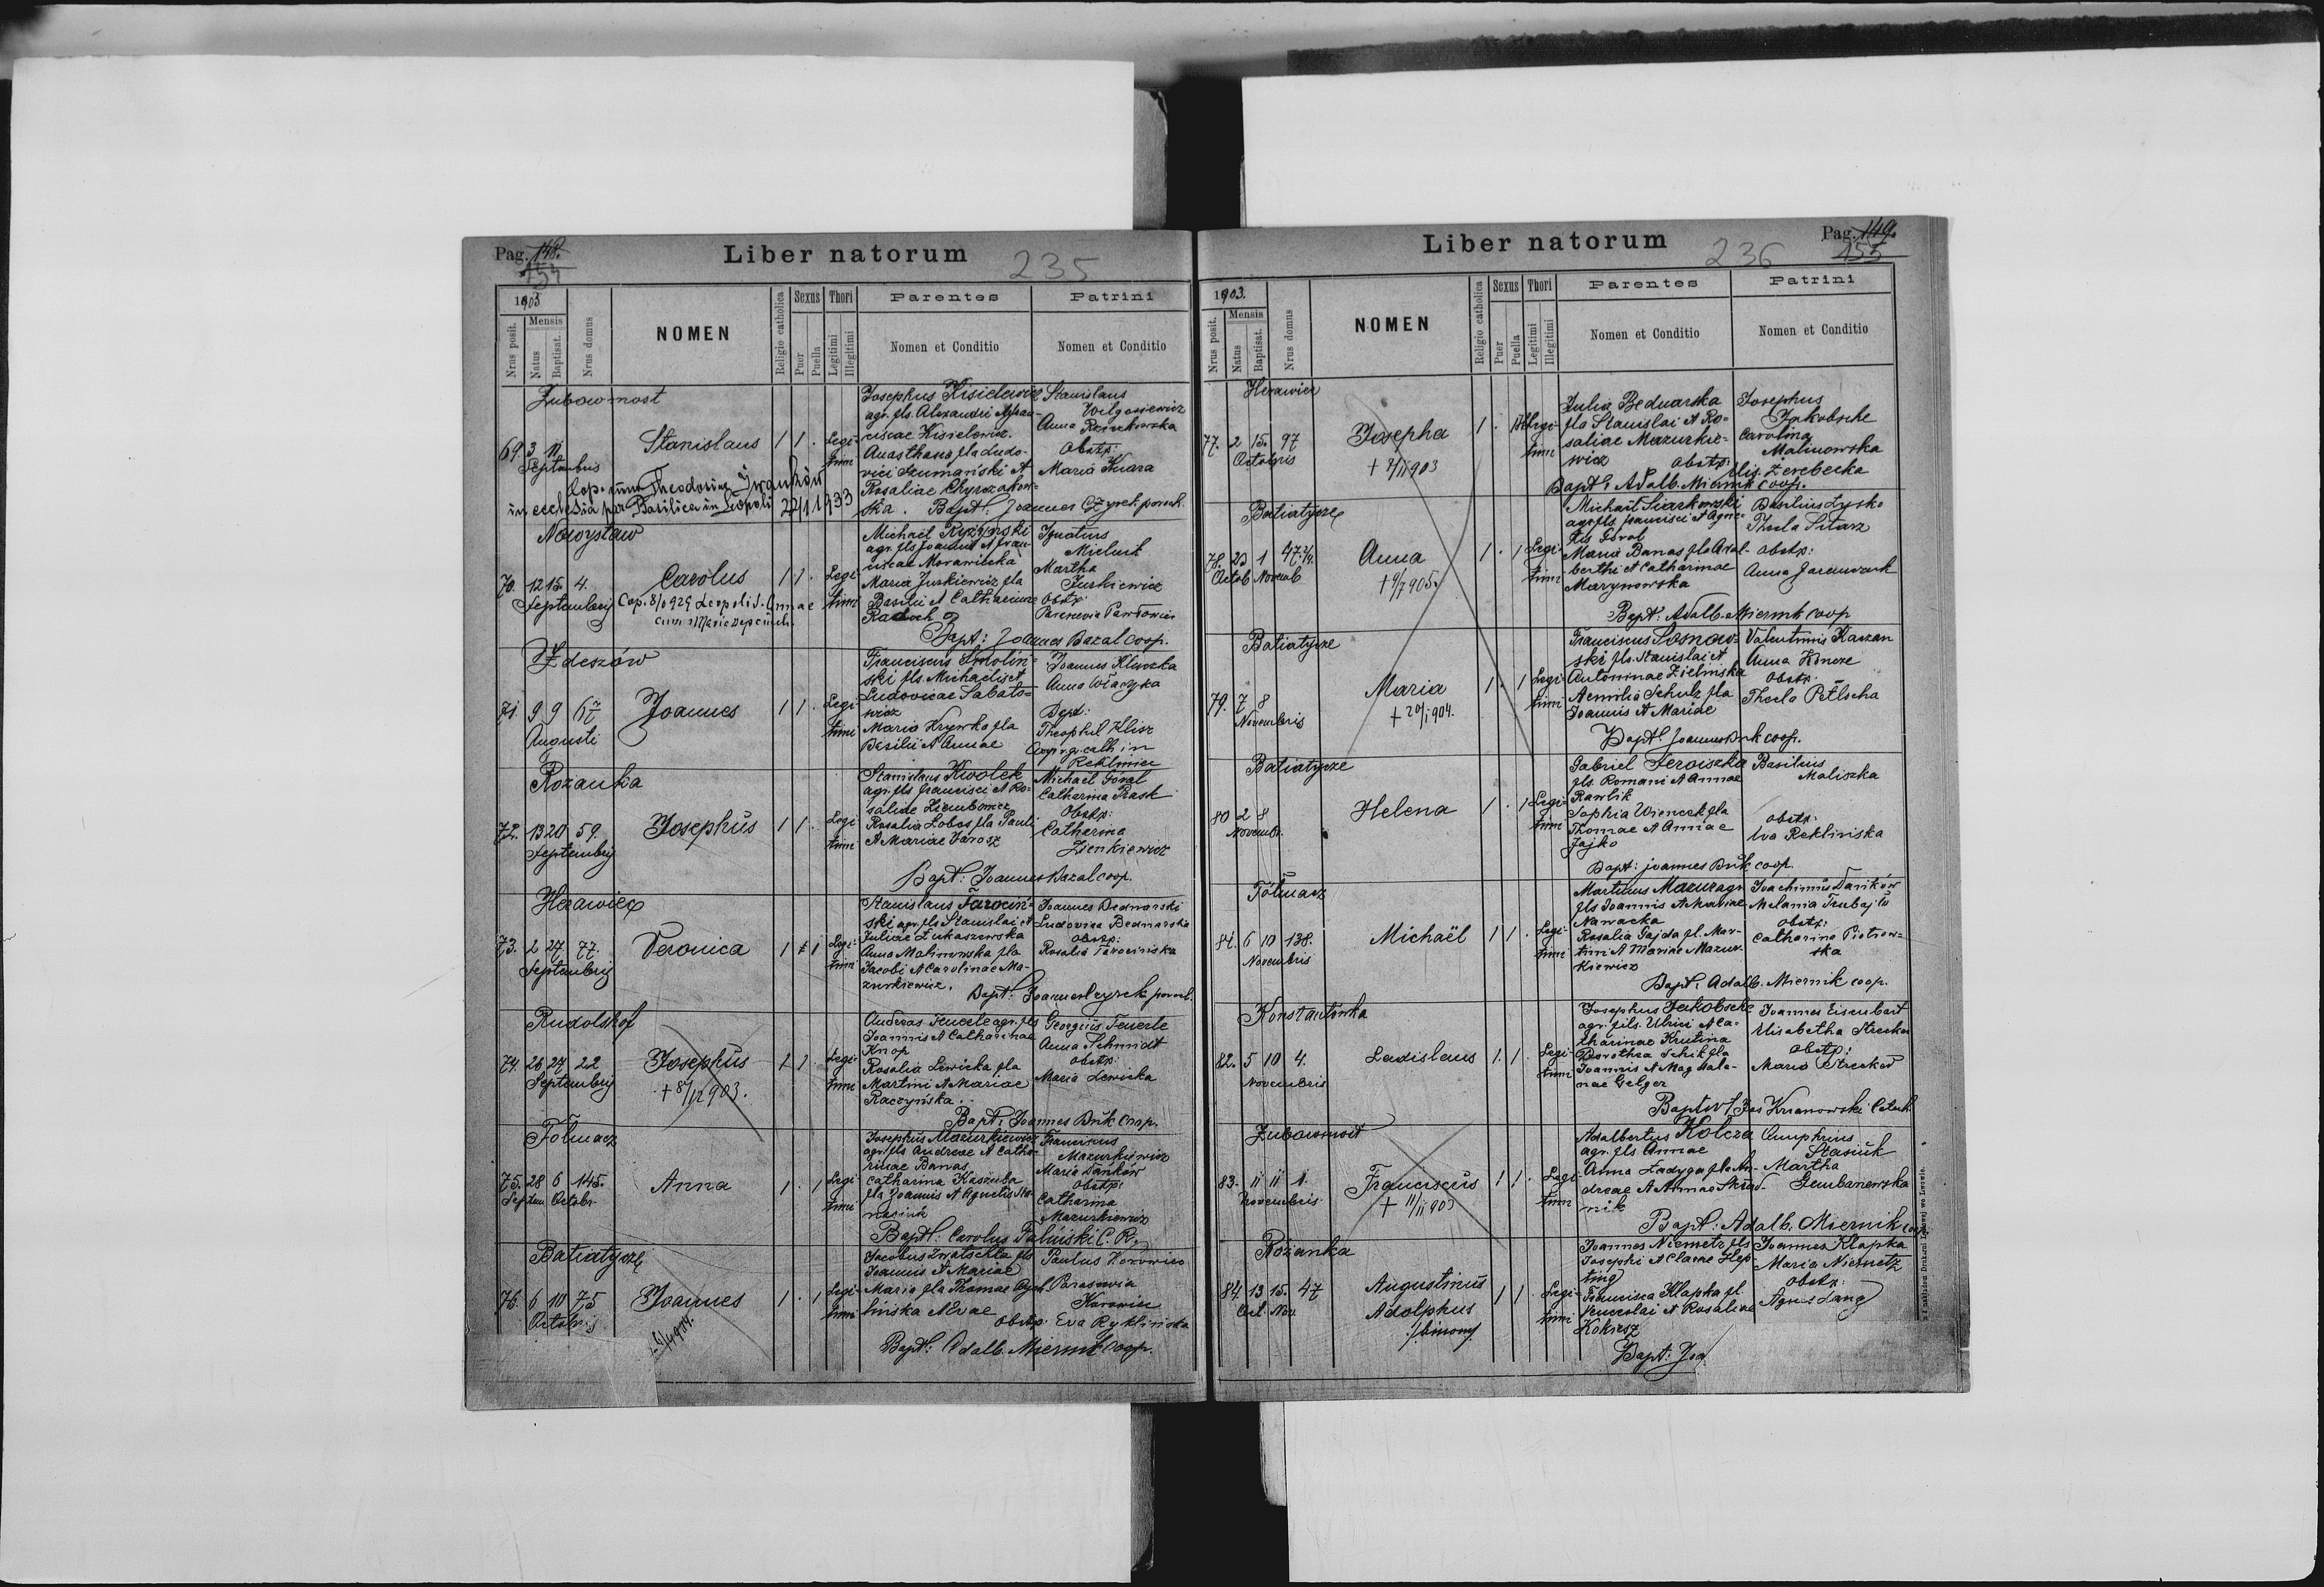 Pag. 148.
154
Liber natorum
235
1903
Nrus posit.
Mensis
Natus
Baptisat.
Nrus domus
NOMEN
Religio catholica
Sexus
Puer
Puella
Thori
Legitimi
Illegitimi
Parentes
Nomen et Conditio
Patrini
Nomen et Conditio
Zubowmost
69. 3 11
Septembris
Stanislaus
1 1 .
Legi-
timi
Josephus Kisielewicz
agr. fls. Alexandri et Fran-
ciscae Kisielewicz.
Anasthasia fla Ludo-
vici Szumański et
Rosaliae Chyrzakow-
ska.
Stanislaus
Wilgosiewicz
Anna
Obstp:
Maria Kuara
Bapt: Joannes Czyrek paroch.
Cop. cum Theodoria Iwanków
in ecclesia par Basilica in Leopoli 22/1 1933
Nowystaw
70. 12 15 4.
Septembris
Carolus
1 1 .
Legi-
timi
Cop. 8/ 929 Leopoli S. Annae
cum Maria
Michaël
agr. fls Joannis et Fran-
ciscae Morawiecka
Maria Jurkiewicz fla
Basilii et Catharinae
Radoch
Ignatius
Martha
Jurkiewicz
Obstp:
Parcewia Pawłowicz
Bapt: Joannes Bazal coop.
Zdeszów
71. 9 9 67
Augusti
Joannes
1 1 .
Legi-
timi
Franciscus Smoliń-
ski fls. Michaelis et
Ludovicae Sabato-
wicz
Maria Krywka fla
Basilii et Annae
Joannes Kluczka
Anna
Bapt:
Theophil Klisz
coop. r. gr. cath in
Reklinec
Rozanka
72. 13 20 59.
Septembris
Josephus
1 1 .
Legi-
timi
Stanislaus Kwolek
agr. fls Francisci et Ro-
saliae
Rosalia Lobos fla Pauli
et Mariae Jarosz
Michael Goral
Catharina Ptask
Obstp:
Catharina
Zienkiewicz
Bapt: Joannes Bazal coop.
Herawiec
73. 2 27 77.
Septembris
Veronica
1 . 1
Legi-
timi
Stanislaus Tarociń-
ski agr. fls Stanislai et
Juliae Łukaszewska
Anna Malinowska fla
Jacobi et Carolinae Ma-
zurkiewicz.
Joannes Bednarski
Ludovica Bednarska
Obstp:
Rosalia Tarocinska
Bapt: Joannes Czyrek paroch.
Rudolshof
74. 26 27 22
Septembris
Josephus
+ 8/12 903.
1 1
Legi-
timi
Andreas Feuerle agr. fls
Joannis et Catharinae
Knop
Rosalia Lewicka fla
Martini et Mariae
Raczyńska.
Georgius Feuerle
Anna Schmidt
Obstp:
Maria Lewicka
Bapt: Joannes Buk coop.
Tołmacz
75. 28 6 145.
Septem Octobr.
Anna
1 . 1
Legi-
timi
Josephus Mazurkiewicz
agr. fls Andreae et Catha-
rinae Banas
Catharina Kaszuba
fla Joannis et Agnetis
Franciscus
Mazurkiewicz
Maria Dańków
Obstp:
Catharina
Mazurkiewicz
Bapt: Carolus C. R.
Batiatycze
76. 6 10 75
Octobris
Joannes
1 . 1
Legi-
timi
Jacobus Zwatschka fls
Joannis et Mariae
Maria fla Thomae
linska et Evae
Paulus Korowiec
Parasewia
Korowiec
Obstp: Eva Ryklinska
Bapt: Adalb. Miernik coop.
Pag. 149.
155
Liber natorum
236
1903.
Nrus posit.
Mensis
Natus
Baptisat.
Nrus domus
NOMEN
Religio catholica
Sexus
Puer
Puella
Thori
Legitimi
Illegitimi
Parentes
Nomen et Conditio
Patrini
Nomen et Conditio
Herawiec
77. 2 15. 97
Octobris
Josepha
+ 4/11 903
1 . 1
Illegi-
timi
Julia Bednarska
fla Stanislai et Ro-
saliae Mazurkie-
wicz
Josephus
Jakobsche
Carolina
Malinowska
Obstp:
Elis. Zerebecka
Bapt: Adalb. Miernik coop.
Batiatycze
78. 23 1 47.
Octob Novemb
Anna
1 . 1
Legi-
timi
Michael Siarkowski
agr. fls Francisci et Agne-
tis Goral
Maria Banas fla Adal-
berthi et Catharinae
Marynowska
Basilius Lysko
Thecla Sitarz
Obstp:
Anna
Bapt: Adalb. Miernik coop
Batiatycze
79. 7 8
Novembris
Maria
+ 20/1 904.
1 . 1
Legi-
timi
Franciscus Sosnow-
ski fls. Stanislai et
Antoninae Zielinska
Aemilia Schulz fla
Joannis et Mariae
Valentinus Kaczan
Anna Koncze
Obstp.
Thecla Petlscha
Bapt: Joannes Buk coop.
Batiatycze
80 2 8
Novembr.
Helena
1 . 1
Legi-
timi
Gabriel Feroiszka
fls. Romani et Annae
Rawlik
Sophia Wiencek fla
Thomae et Annae
Jajko
Basilius
Maliszka
Obstp:
Eva Reklinska
Bapt: Joannes Buk coop.
Tołmacz
81. 6 10 138.
Novembris
Michaël
1 1 .
Legi-
timi
Martinus Mazur agr.
fls Joannis et Mariae
Nawacka
Rosalia Gajda fl. Mar-
tini et Mariae Mazur-
kiewicz
Joachimus Dańków
Melania
Obstp:
Catharina Piotrow-
ska
Bapt: Adalb. Miernik coop.
Konstantówka
82. 5 10 4.
Novembris
Ladislaus
1. 1 .
Legi-
timi
Josephus Jakobsche
agr. fils. Ulrici et Ca-
tharinae Krutina
Dorothea Schik fla
Joannis et Magdale-
nae Gelger
Joannes Eisenbart
Elisabetha Strecker
Obstp:
Maria Strecker
Zubowmost
83. 11 11 1.
Novembris
Franciscus
+ 11/11 903
1 1 .
Legi-
timi
Adalbertus Kolcza
agr. fls Annae
Anna Ladyga fla An-
dreae et Annae
nik
Onuphrius
Stasiuk
Martha
Gembarzewska
Bapt: Adalb. Miernik coop.
Rozanka
84. 13 15. 47
Oct. Nov.
Augustinus
Adolphus
/binomy/
1 1
Legi-
timi
Joannes Niemetz fls
Josephi et Clarae
Francisca Klapka fl.
Venceslai et Rosaliae
Kokiesz
Joannes Klapka
Maria Niemetz
Obstp:
Agnes Lang
Bapt: Joa